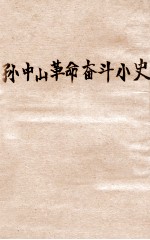 孙中山革命奋斗小史